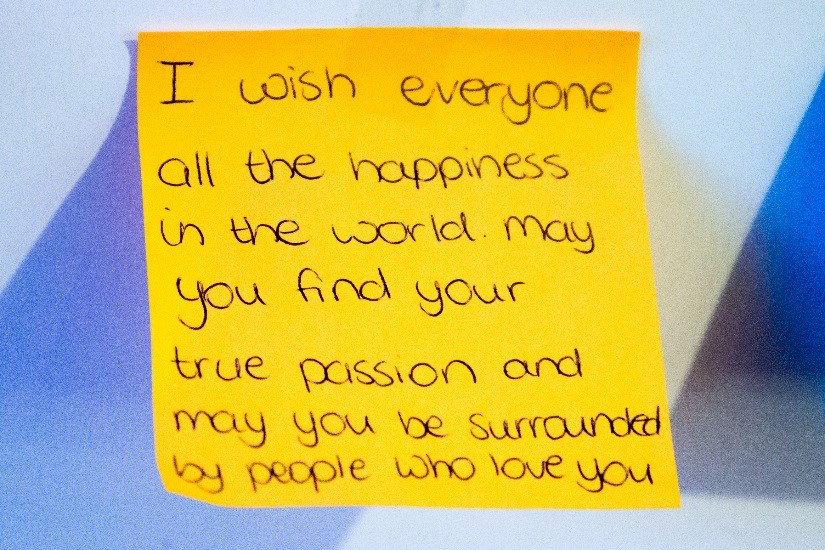 I wish everyone
all the happiness
in the world. may
you find your
true passion and
may you be surrounded
by people who love you